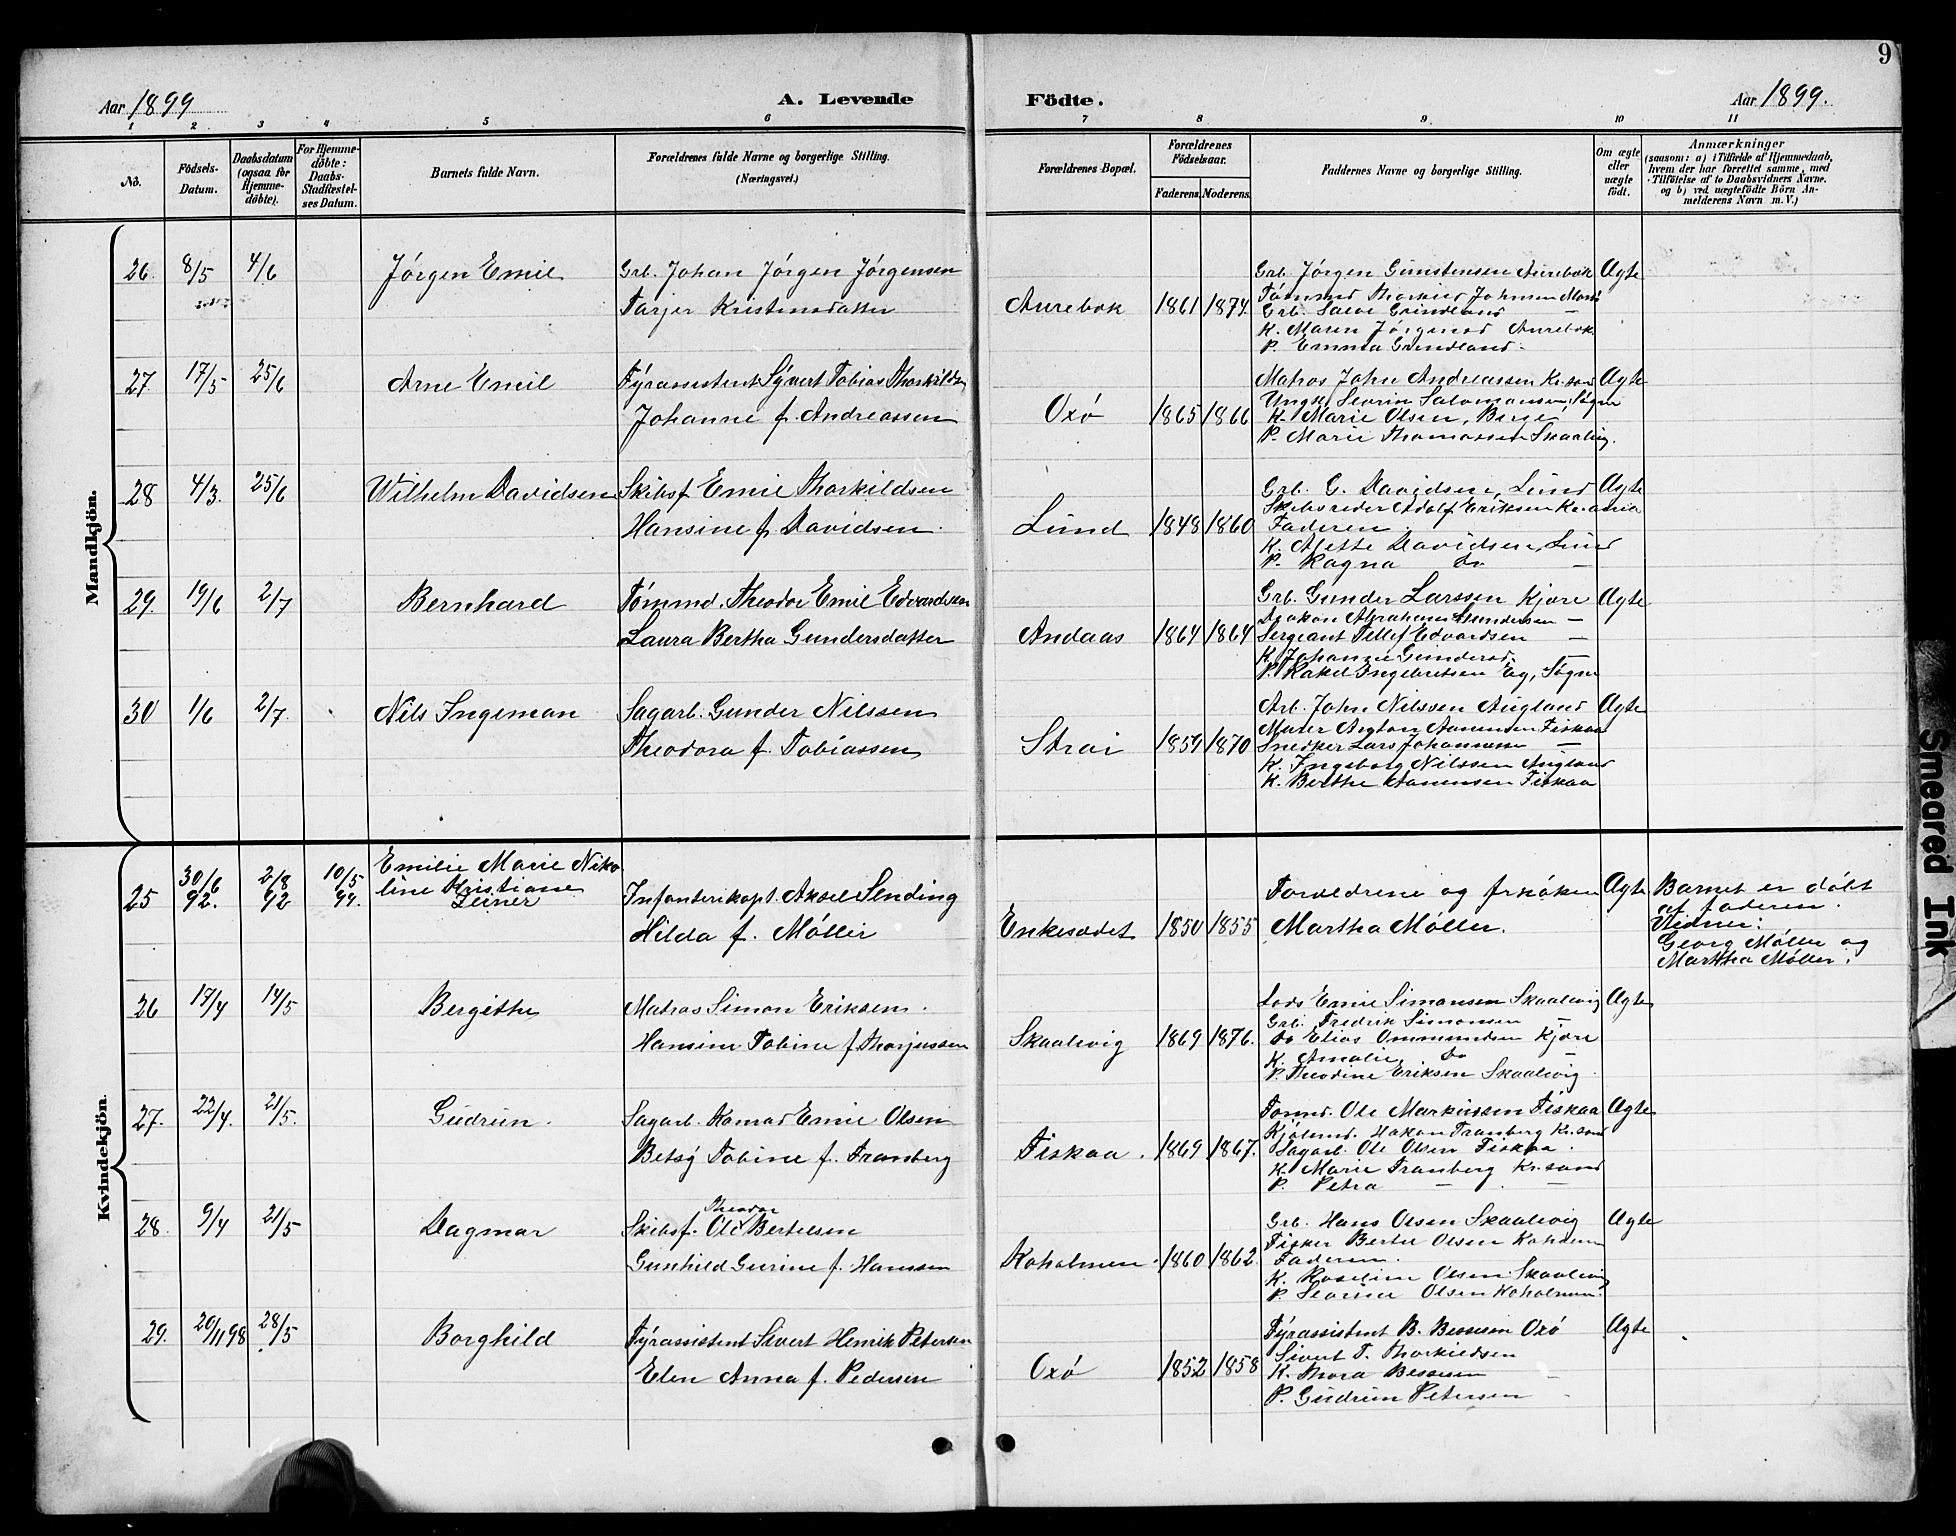 9
Aar 1899
A. Levende
Födte.
Aar 1899.
1 2 3 4 5 6 7 8 9 10 11
No.
Födsels-Datum.
Daabsdatum (ogsaa for Hjemme-döbte).
For Hjemme-döbte: Daabs-Stadfæstel-ses Datum.
Barnets fulde Navn.
Forældrenes fulde Navne og borgerlige Stilling.
(Næringsvei.)
Forældrenes Bopæl.
Forældrenes Födselsaar.
Faderens. Moderens.
Faddernes Navne og borgerlige Stilling.
Om ægte eller uægte födt.
Anmærkninger
(saasom: a) i Tilfælde af Hjemmedaab, hvem der har forrettet samme, med Tilföielse af to Daabsvidners Navne. og b) ved uægtefödte Börn An-melderens Navn m. V.)
Mandkjön.
26. 8/5 4/6 Jórgen Emil
Grb. Johan Jórgen Jórgensen
Tarjer Kristensdatter
Aurebæk 1861 1874.
Grb. Jórgen Gunstensen Aurebæk
Grb. Salve Grindland —
K. Maren Jórgensd Aurebæk
P. Emma Grindland.
Ægte
27. 17/5 25/6 Arne Emil
Fýrassistent Sývert Tobias Thorkilds
Johanne f. Andreassen
Oxó 1865 1866
Matros John Andreassen Kr.sand
Ungk Severin Salomonsen, Søgne
K. Marie Olsen, Berge
P. Marie Thomassen Skaalvig.
Ægte
28 4/3. 25/6 Wilhelm Davidsen
Skibsf Emil Thorkildsen
Hansine f. Davidsen.
Lund 1848 1860
Grb. G. Davidsen, Lund
Skibsreder Adolf Eriksen Kr.ania
Faderen.
K. Mette Davidsen, Lund
P. Ragna do —
Ægte
29. 19/6 2/7 Bernhard
Tómmd. Theodor Emil Edvardsen
Laura Bertha Gundersdatter
Andaas 1864 1864
Grb. Gunder Larssen Kjære
Abraham Gundersen —
Sergeant Tellef Edvardsen —
K. Johanne Gundersd. —
P. Rakel Ingebretsen Eg, Søgne
Ægte
30 1/6 2/7. Nils Ingeman
Sagarb. Gunder Nilssen
Theodora f. Tobiassen
Strai 1859 1870
Arb. John Nilssen Augland
Murer Anton Aanensen Fiskaa
Snedker Lars Johannesen —
K. Ingeborg Nilssen Augland
K. Berthe Aanensen Fiskaa
Ægte
Kvindekjön.
25 30/6 92. 2/8 92 10/5 99. Emilie Marie Niko
line Kristiane
Zeiner
Infanterikapt. Aksel Sending
Hilda f. Møller
Enkesædet 1850 1855
Forældrene og frøken
Martha Møller.
Ægte
Barnet er døbt
af faderen.
Vidner:
Georg Møller og
Martha Møller.
26 17/4 14/5 Bergithe
Matros Simon Eriksen.
Hansine Tobine f. Thorjussen
Skaalevig 1869 1876.
Lods Emil Simonsen Skaalevig
Grb. Fredrik Simonsen —
do Elias Ommundsen Kjære
K. Amalie do —
P. Theodine Eriksen Skaalevig
Ægte
27. 22/4. 21/5. Gudrun.
Sagarb. Konrad Emil Olsen
Betsý Tobine f. Tranberg
Fiskaa. 1869 1867.
Tómd. Ole Markussen Fiskaa
Kjólmd. Hakon Tranberg Kr.sand
Sagarb. Ole Olsen Fiskaa.
K. Marie Tranberg Kr.sand
P. Petra — —
Ægte
28. 9/4 21/5 Dagmar
Theodor
Skibsf. Ole Bertelsen
Gunhild Gurine f. Hanssen
Koholmen. 1860 1862.
Grb. Hans Olsen Skaalevig
Fisker Bertel Olsen Koholmen
Faderen.
K. Roseline Olsen Skaalevig
P. Severine Olsen Koholmen.
Ægte
29. 20/11 98 28/5 Borghild
Fýrassistent Sivert Henrik Petersen
Elen Anna f. Pedersen
Oxó 1852 1858
Fýrassistent B. Bessesen Oxó
Sivert T. Thorkildsen
K. Thora Bessesen —
P. Gudrun Petersen —
Ægte
Smeared Ink